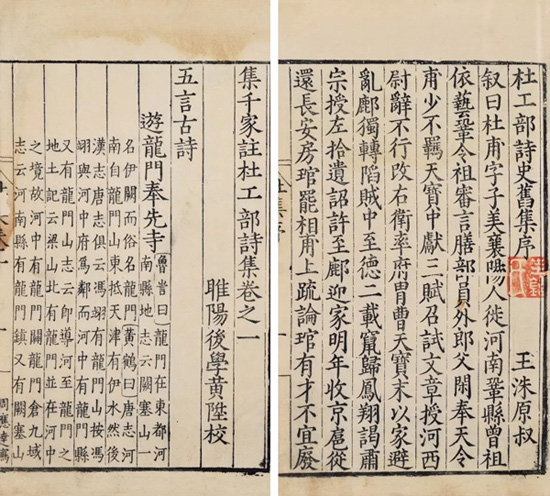 杜工部詩史舊集序
王洙原叔
叙曰杜甫字子美襄陽人徙河南鞏縣曾祖
依藝鞏令祖審言膳部員外郎父閑奉天令
甫少不羈天寶中獻三賦召試文章授河西
尉辭不行改右衛率府胄曹天寶末以家避
亂鄜獨轉陷賊中至德二載竄歸鳳翔謁肅
宗授左拾遺詔許至鄜迎家明年收京扈從
還長安房琯罷相甫上疏論琯有才不宜廢
集千家註杜工部詩集卷之一
睢陽後學黃陞校
五言古詩
遊龍門奉先寺
魯訔曰龍門在東都河
南縣地志云闕塞山一
名伊闕而俗名龍門黃鶴曰唐志河
南自龍門山東抵天津有伊水然後
漢志唐志俱云馮翊有龍門山按馮
翊與河中府為鄰而河中有龍門縣
又有龍門山志云卽導河至龍門之
地土記云梁山北有龍門並在河中
之境故河中有龍門關龍門倉九域
志云河南縣有龍門鎮又有闕塞山